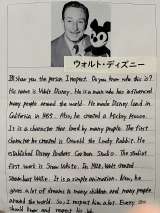 ウォルト・ディズニー
I'll show you the person I respect. Do you know who this is?
His name is Walt Disney. He is a man who has influenced
many people around the world. He made Disney land in
California in 1955. Also, he created a Mickey Mouse.
It is a character that loved by many people. The first
character he created is Oswald the Lucky Rabbit. He
established Disney Brothers Cartoon Studio. The studio's
first work is Snow White. In 1928, Walt created
Steamboat Willie. It is a simple animation. Also, he
gives a lot of dreams to many children and many people
around the world. So I respect him a lot. Every one
should know and respect his life